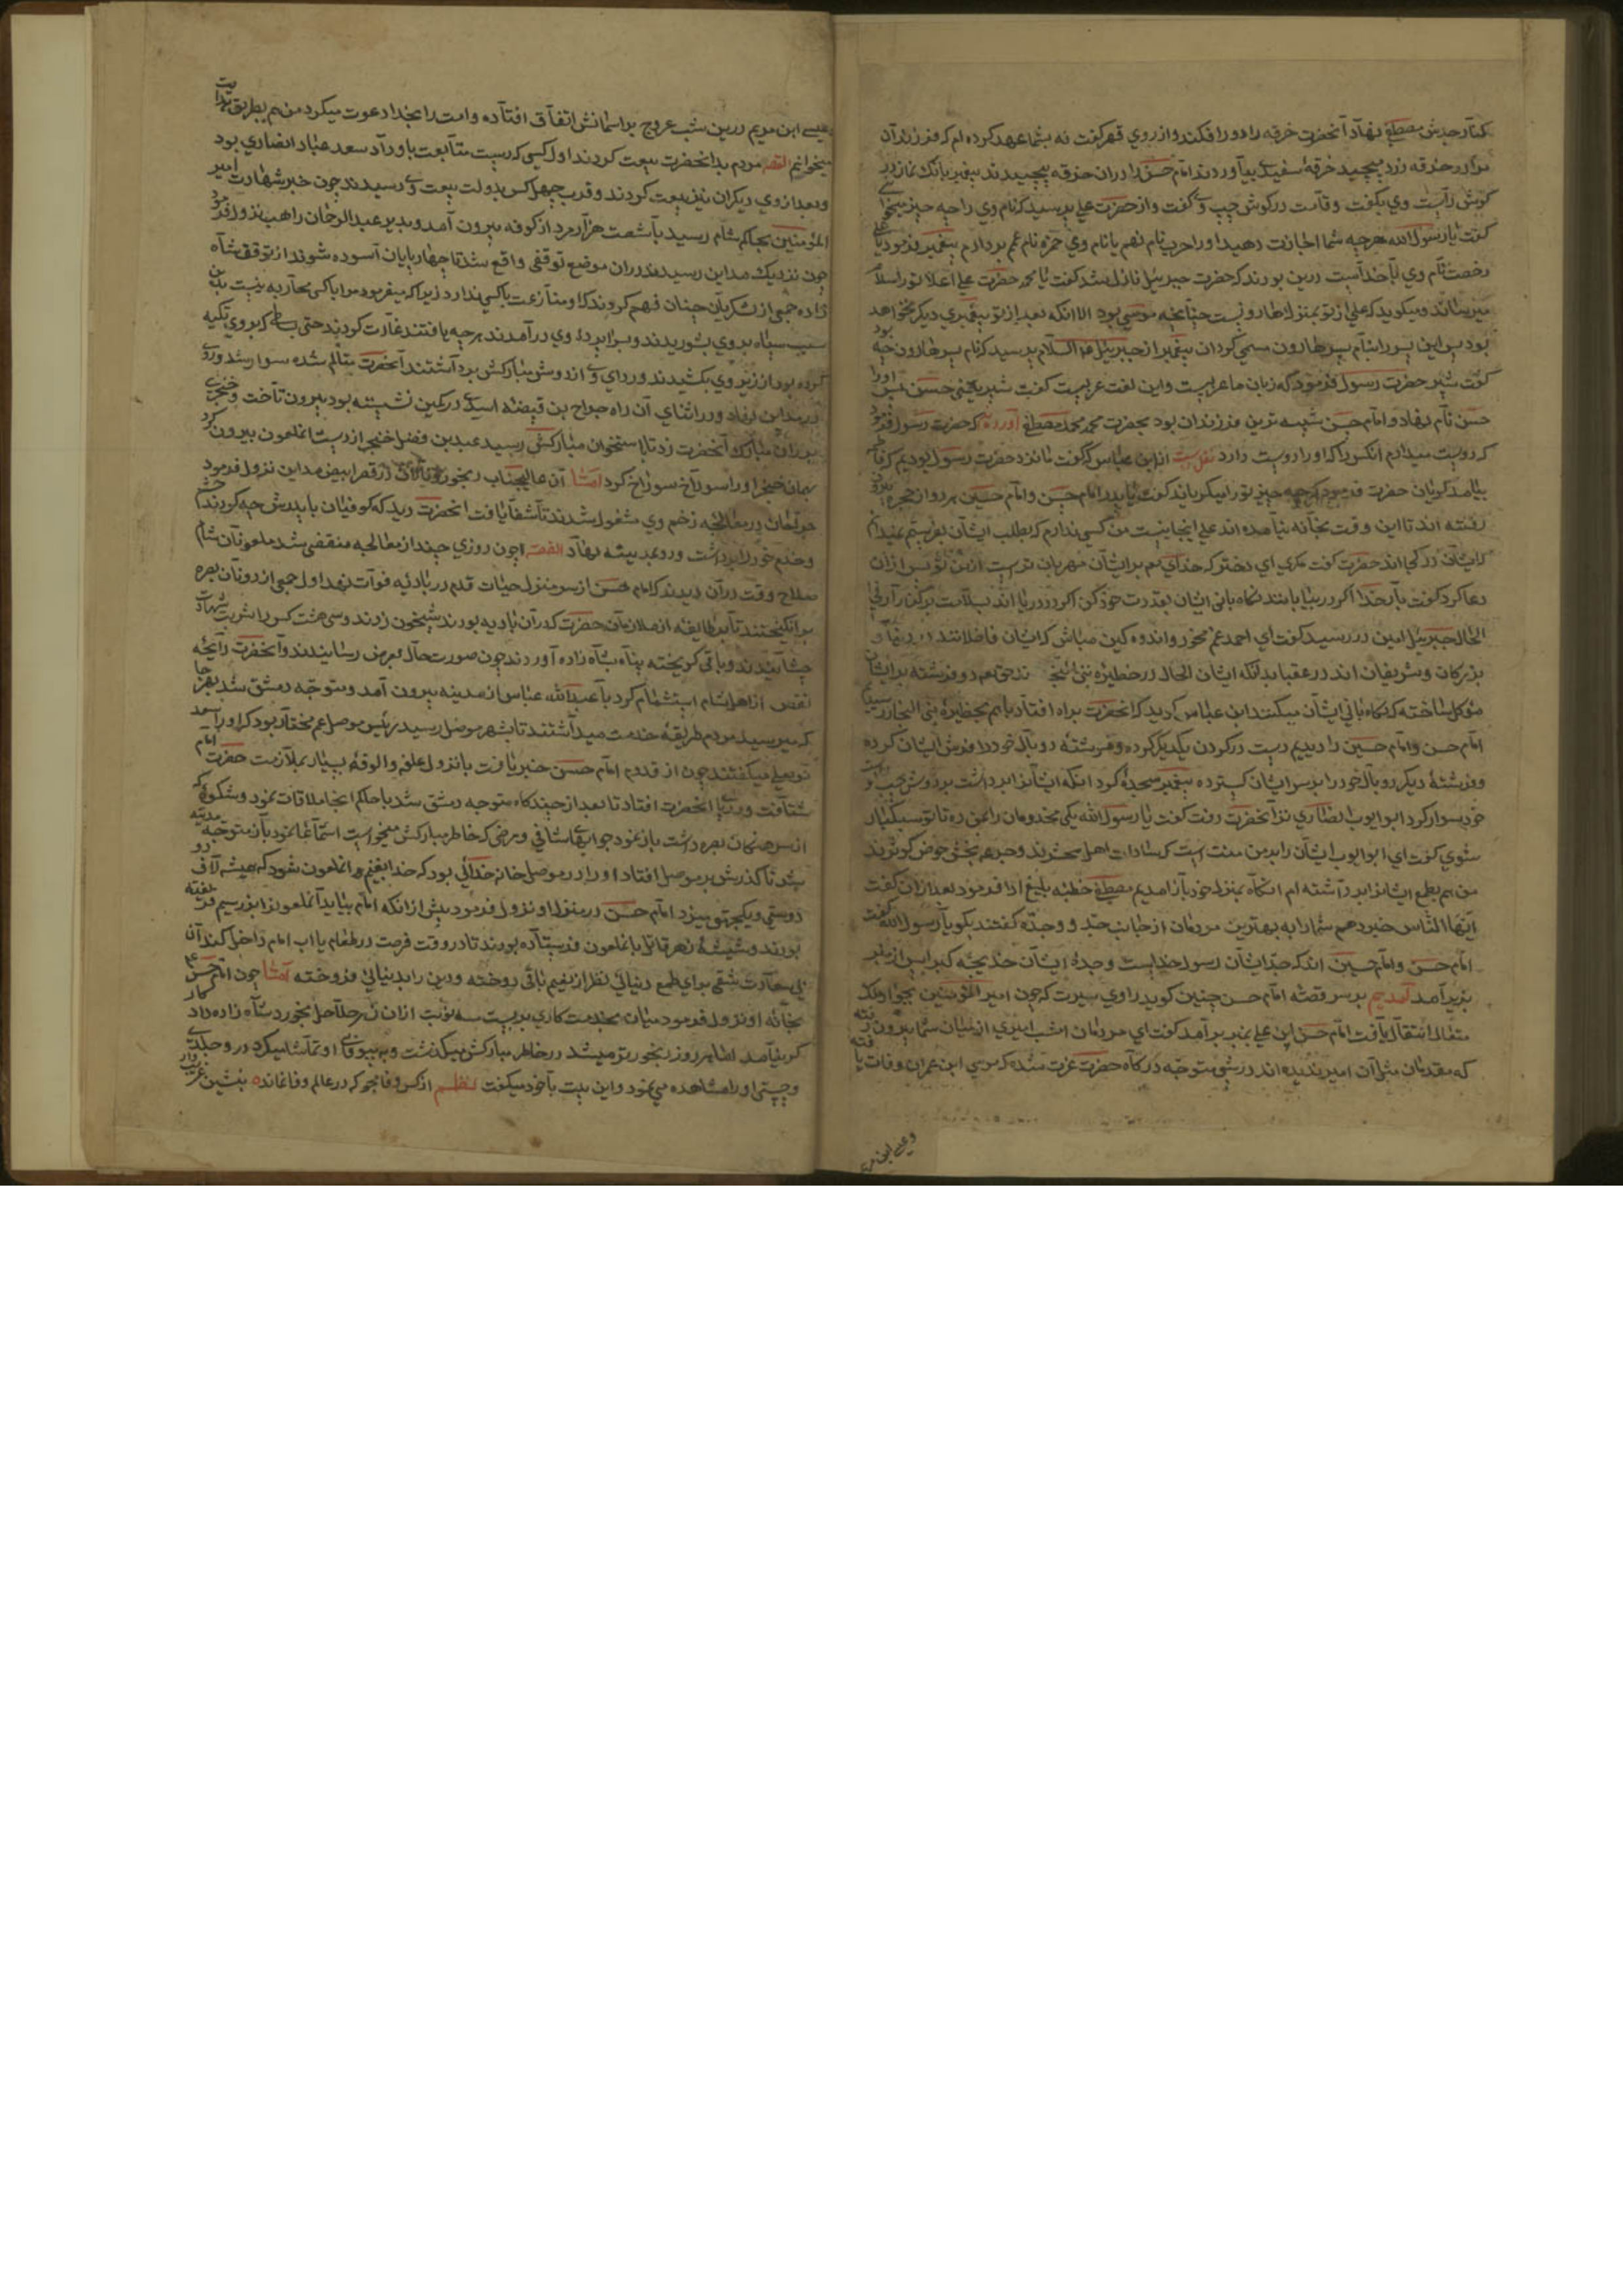 کنار جدش مصطفی نهاد آنحضرت خرقه را دور افکند و از روی قهر گفت نه بشما عهد کرده ام که فرزندان
مرا در خرقه زرد مپیچید خرقهٔ سفید بیاوردند امام حسن را دران خرقه پیچیدند پیغمبر بانک نماز در
گوش راست وی بگفت و قامت در گوش چپ وی گفت و از حضرت علی پرسید که نام وی را چه چیز
گفت یا رسول الله هرچه شما اجازت دهید او را حرب نام نهم یا نام وی حمزه نام عم بردارم پیغمبر فرمود یا علی
رخصت نام وی با خداست درین بودند که حضرت جبرئیل نازل شد گفت یا محمد حضرت علی اعلا تو را سلام
میرساند و میکوید که علی از تو بمنزله هارونست چنانچه موسی بود الا انکه بعد از تو پیغمبری دیگر نخواهد بود
بود پس این پسر را بنام پسر هارون مسمی کردان پیغمبر از جبرئیل علیه السلام پرسید که نام پسر هارون چه
گفت شبر حضرت رسول فرمود که زبان ما عربیست و این لغت عربیست گفت شبر یعنی حسن پس او را
حسن نام نهاد و امام حسن شبیه ترین فرزندان بود بحضرت محمد مصطفی آورده که حضرت رسول فرمود
که دوست میدارم انکس را که او را دوست دارد نقل است از ابن عباس که گفت ما نزد حضرت رسول بودیم که فاطمه
بیامد گریان حضرت فرمود که چه چیز تو را میگریاند گفت یا پدر امام حسن و امام حسین هر دو از حجره بیرون
رفته اند تا این وقت بخانه نیامده اند علی اینجا نیست من کسی ندارم که بطلب ایشان بفرستم نمیدانم
که ایشان در کجا اند حضرت گفت مگری ای دختر که خدای هم بر ایشان مهربان ترست از من و تو پس ازان
دعا کرد گفت بار خدا اگر در بیابانند نکاه بانی ایشان بقدرت خود کن اگر در دریا اند بسلامت بر کنار آر فی
الحال جبرئیل امین در رسید گفت ای احمد غم مخور و اندوه کین مباش که ایشان فاضلانند در دنیا و
بزرکان و شریفان اند در عقبا بدانکه ایشان الحال در حظیرهٔ بنی النجار
موکل ساخته که نکاه بانی ایشان میکنند ابن عباس کوید که انحضرت براه افتاد با هم بحظیرهٔ بنی النجار رسیدیم
امام حسن و امام حسین را دیدیم دست در کردن یکدیکر کرده و فرشتهٔ دو بال خود را فرش ایشان کرده
و فرشتهٔ دیگر دو بال خود را بر سر ایشان کسترده پیغمبر سجدهٔ کرد انکه ایشانرا برداشت بر دوش چپ و راست
خود سوار کرد ابو ایوب انصاری نزد آنحضرت رفت گفت یا رسول الله یکی مخدومان را بمن ده تا تو سبکبار
شوی گفت ای ابو ایوب ایشان را بر من منت است که سادات اهل محشرند و جد هم بخش حوض کوثرند
من هم بطمع ایشانرا برداشته ام انکاه بمنزل خود باز امدیم مصطفی خطبه بلیغ ادا فرمود بعد ازان گفت
ایها الناس خبر دهم شما را به بهترین مردمان از جانب جد و جده گفتند بکو یا رسول الله گفت
امام حسن و امام حسین اند که جد ایشان رسول خداست و جدهٔ ایشان خدیجه کبرا پس از منبر
بزیر آمد آمدیم بر سر قصه امام حسن چنین کوید راوی سیرت که چون امیر المؤمنین بجوار ملک
متعال انتقال یافت امام حسن ابن علی بمنبر بر آمد گفت ای مردمان امشب امیری از میان شما بیرون رفته
که مقدمان مثل آن امیر ندیده اند در شبی متوجه درکاه حضرت عزت شده که موسی ابن عمران وفات یافته
و عیسی ابن مریم
عیسی ابن مریم درین شب عروج بر اسمانش اتفاق افتاده و امت را بخدا دعوت میکرد من هم بطریق
میخوانم القصه مردم بدانحضرت بیعت کردند اول کسی که دست متابعت باو داد سعد عباد انصاری بود
و بعد از وی دیکران نیز بیعت کردند و قرب چهل کس بدولت بیعت وی رسیدند چون خبر شهادت امیر
المؤمنین بحاکم شام رسید با شصت هزار مرد از کوفه بیرون آمد و بدیر عبد الرحمان راهب نزول فرمود
چون نزدیک مداین رسیدند دران موضع توقفی واقع شد تا چهارپایان آسوده شوند از توقف شاه
زاده جمعی از لشکریان چنان فهم کردند که او منازعت با کسی ندارد زیرا که میفرمود مرا با کسی محاربه نیست
سبب سپاه بر وی بشوریدند و بسراپردهٔ وی در آمدند هرچه یافتند غارت کردند حتی بساطی که بر وی تکیه
کرده بود از زیر وی بکشیدند و ردای وی از دوش مبارکش برداشتند آنحضرت متالم شده سوار شد و روی
در مداین نهاد و در اثنای آن راه جراح بن قبیضه اسدی در کمین نشسته بود بیرون تاخت و خنجری
بر ران مبارک آنحضرت زد تا باستخوان مبارکش رسید عبید بن فضل خنجر از دست انملعون بیرون کرد
بهمان خنجر او را سوراخ سوراخ کرد امّا آن عالیجناب رنجور و نالان در قصر ابیض مداین نزول فرمود
جراحان در معالجه زخم وی مشغول شدند تا شفا یافت انحضرت دید که کوفیان با پدرش چه کردند
و خدم خود را برداشت و رو بمدینه نهاد القصه چون روزی چند از معالجه منقضی شد ملعونان شام
صلاح وقت دران دیدند که امام حسن از سر منزل حیات قدم در بادیه فوات نهد اول جمعی از دونان بصره
بر انکیختند تا بر طایفه از ملازمان حضرت که دران بادیه بودند شبیخون زدند و سی هشت کس را شربت شهادت
چشانیدند و باقی کریخته پناه بشاه زاده آوردند چون صورت حال بعرض رسانیدند و آنحضرت رایحه
نقض از اهل شام استشمام کرد با عبد الله عباس از مدینه بیرون آمد و متوجه دمشق شد بهر جا
که میرسید مردم طریقه خدمت میداشتند تا بشهر موصل رسید رئیس موصل عم مختار بود که او را سعد
موصلی میکفتند چون از قدوم امام حسن خبر یافت با نزول علفه و الوفه بسیار بملازمت حضرت امام
شتافت و در پای انحضرت افتاد تا بعد از چند کاه متوجه دمشق شد با حاکم انجا ملاقات نمود و شکوهٔ که
از سرهنکان بصره داشت باز نمود جوابهای شافی و مرضی که خاطر مبارکش میخواست استماع نمود باز متوجه مدینه
شد تا گذرش بر موصل افتاد او را در موصل خانه خدائی بود که خدا بغیر انملعون نشود که همیشه لاف
دوستی و یکجهتی میزد امام حسن در منزل او نزول فرمود پیش از انکه امام بیاید آنملعونرا بزر سیم فریفته
بودند و شیشهٔ زهر قاتل بانملعون فرستاده بودند تا در وقت فرصت در طعام یا اب امام داخل کند آن
بی سعادت شقی برای طمع دنیای نظر از نعیم باقی دوخته و دین را بدنیائی فروخته امّا چون امام حسن
بخانه او نزول فرمود میان بخدمتکاری بر بست سه نوبت ازان زهر هلاهل بخورد شاه زاده داد
کر نیامد اما هر روز رنجورتر میشد در خاطر مبارکش میکذشت و به بیوفائی او تماشا میکرد
و چستی او را مشاهده می نمود و این بیت با خود میکفت نظم از کس وفا مجو که در عالم وفا نمانده بنشین